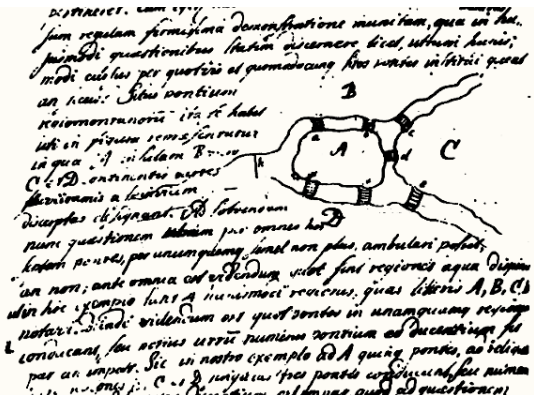 sum regulam firmissima demonstratione munitam, qua in hu-
jusmodi quæstionibus statim discernere licet, utrum hujus-
modi cursus per quotvis et quomodocunq sitos pontes institui queat
an secus. Situs pontium
regiomontanorum ita se habet
uti in figura repræsentatur
in qua A insulam B vero
C et D continentis partes
a se invicem
discerptas designant. Ad solvendam
nunc quæstionem utrum per omnes hos
pontes, per unumquemq semel non plus, ambulari possit,
an non; ante omnia est videndum quot sint regiones aqua
in hoc exemplo sunt 4 hujusmodi regiones, quas literis A, B, C, D
notavi. Deinde videndum est quot pontes in unamquamq regionem
conducant, seu potius utrum numerus pontium eo ducentium sit
par an impar. Sic in nostro exemplo ad A quinq pontes, ad reliquas
C et D singulas tres pontes conducunt, seu numerus
ad quæstionem
B
A
C
D
a
c
d